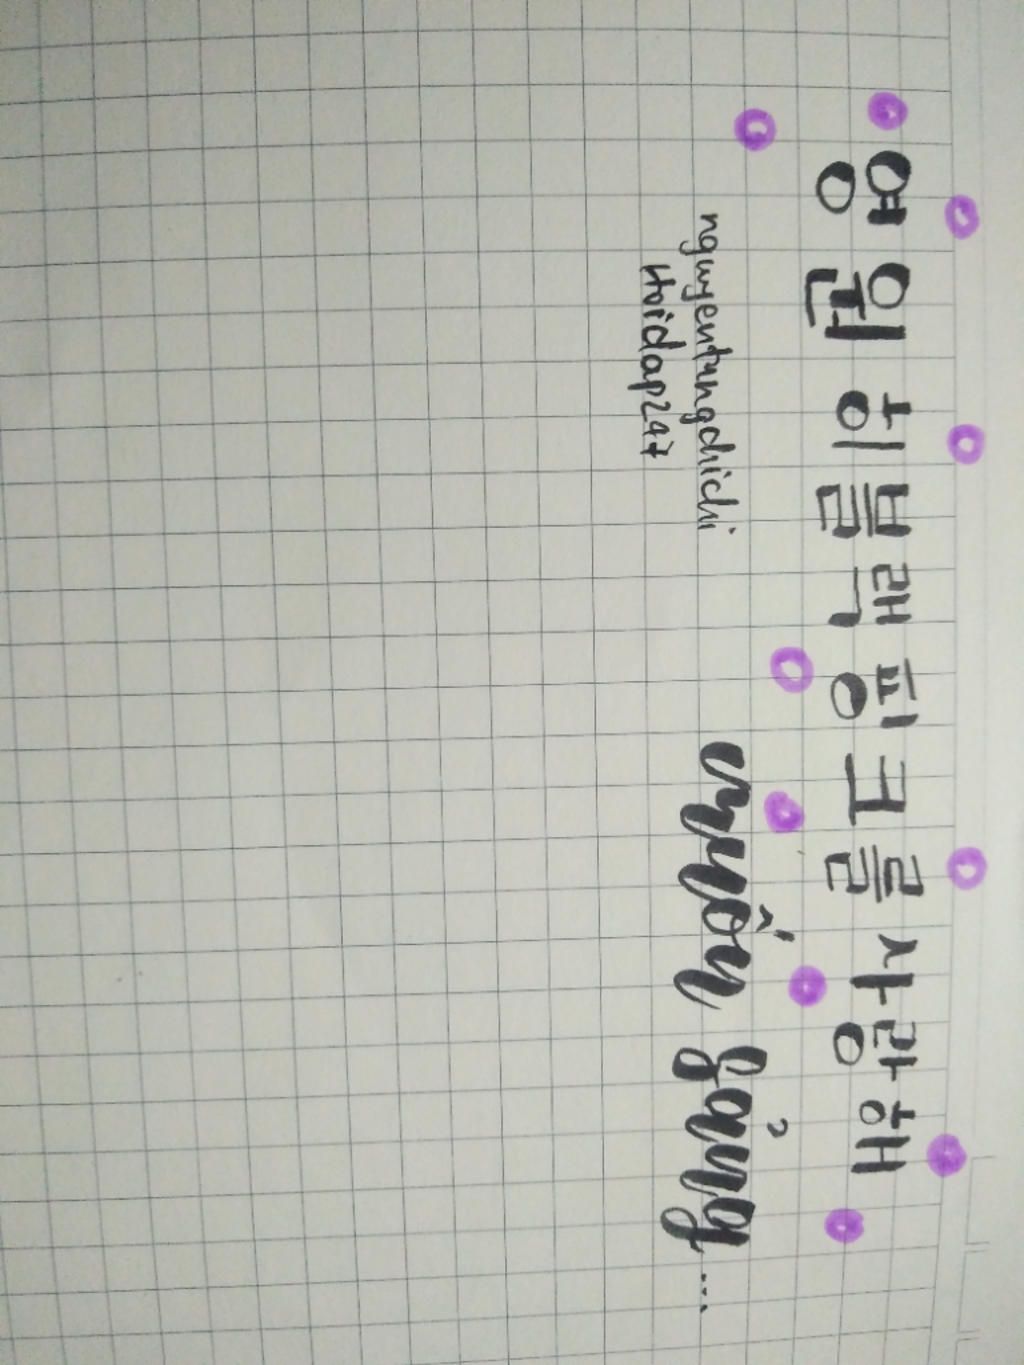 영원히 블랙핑크를 사랑해
nguyentungchichi
Hoidap247
muốn sảng ...